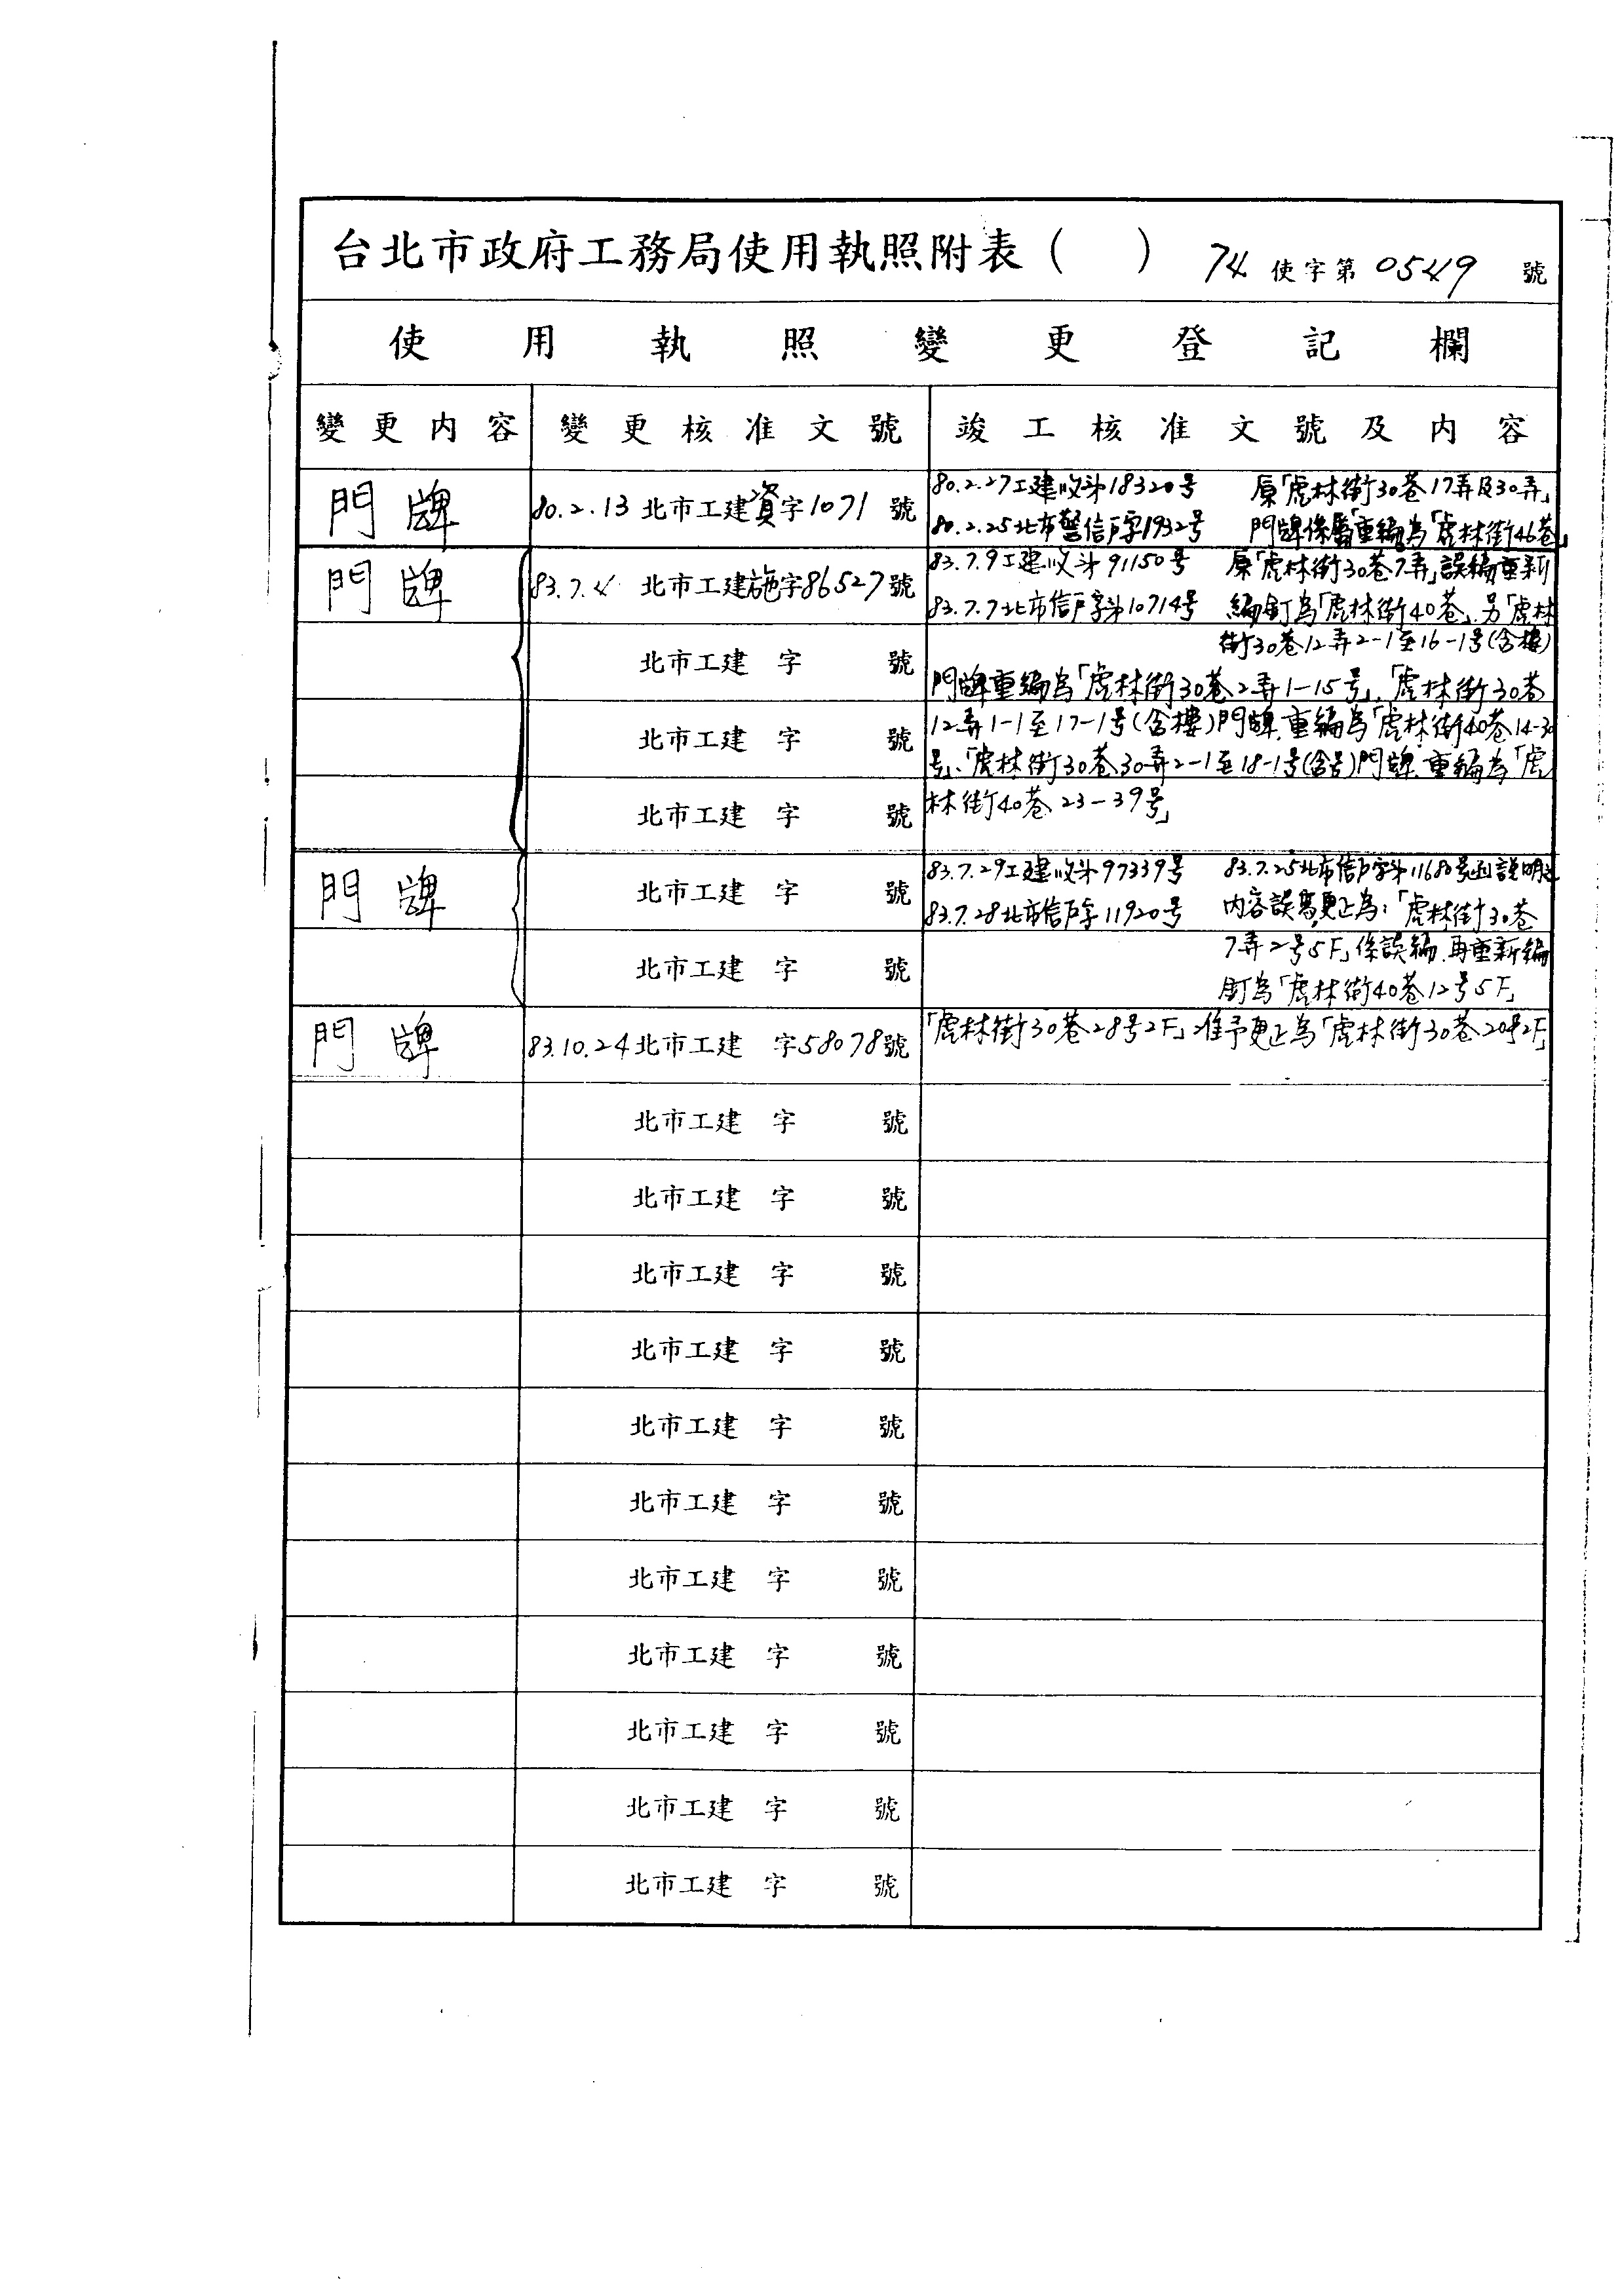 台北市政府工務局使用執照附表（　）　74使字第0549號
使用執照變更登記欄
變更內容　變更核准文號　竣工核准文號及內容
門牌　80.2.13北市工建資字1071號　80.2.27工建收第18320号　原「虎林街30巷17弄及30弄」
80.2.25北市警信戶字1932号　門牌係屬重編為「虎林街46巷」
門牌　83.7.4北市工建施字86527號　83.7.9工建收第91150号　原「虎林街30巷7弄」誤編重新
83.7.7北市信戶字第10714号　編釘為「虎林街40巷」.另「虎林
北市工建　字　號　街30巷12弄2-1至16-1号(含樓)
門牌重編為「虎林街30巷2弄1-15号」.「虎林街30巷
北市工建　字　號　12弄1-1至17-1号(含樓)門牌.重編為「虎林街40巷14-30
号」、「虎林街30巷30弄2-1至18-1号(含号)門牌.重編為「虎
北市工建　字　號　林街40巷23-39号」
門牌　北市工建　字　號　83.7.29工建收第97339号　83.7.25北市信戶字第11680号函說明
83.7.28北市信戶字11920号　內容誤寫更正為：「虎林街30巷
北市工建　字　號　7弄2号5F」係誤編.再重新編
釘為「虎林街40巷12号5F」
門牌　83.10.24北市工建　字58078號　「虎林街30巷28号2F」准予更正為「虎林街30巷20号2F」
北市工建　字　號
北市工建　字　號
北市工建　字　號
北市工建　字　號
北市工建　字　號
北市工建　字　號
北市工建　字　號
北市工建　字　號
北市工建　字　號
北市工建　字　號
北市工建　字　號